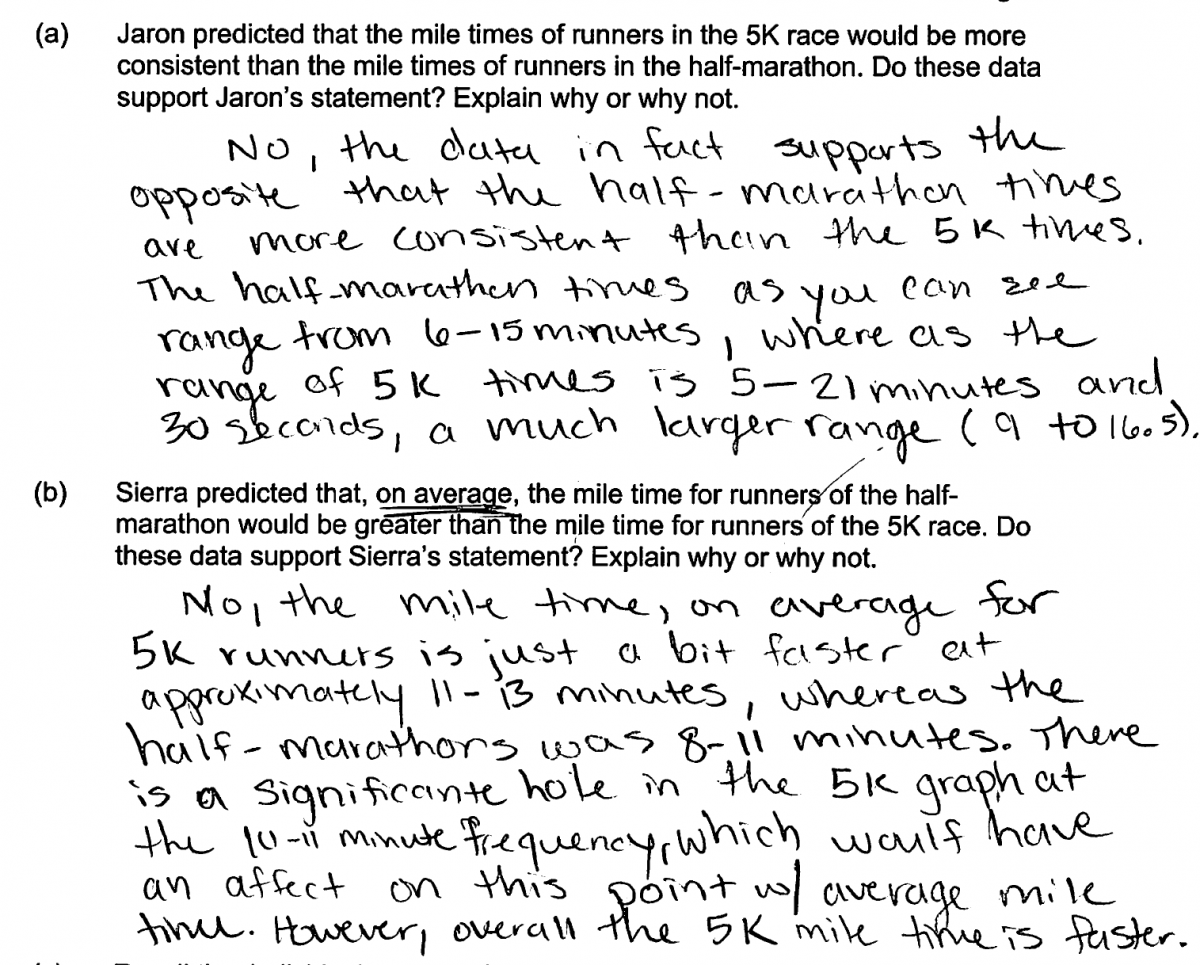 (a) Jaron predicted that the mile times of runners in the 5K race would be more
consistent than the mile times of runners in the half-marathon. Do these data
support Jaron's statement? Explain why or why not.
No, the data in fact supports the
opposite that the half-marathon times
are more consistent than the 5K times.
The half-marathon times as you can see
range from 6-15 minutes, where as the
range of 5K times is 5-21 minutes and
30 seconds, a much larger range (9 to 16.5).
(b) Sierra predicted that, on average, the mile time for runners of the half-
marathon would be greater than the mile time for runners of the 5K race. Do
these data support Sierra's statement? Explain why or why not.
No, the mile time, on average for
5K runners is just a bit faster at
approximately 11-13 minutes, whereas the
half-marathons was 8-11 minutes. There
is a significante hole in the 5K graph at
the 10-11 minute frequency, which woulf have
an affect on this point w/ average mile
time. However, overall the 5K mile time is faster.